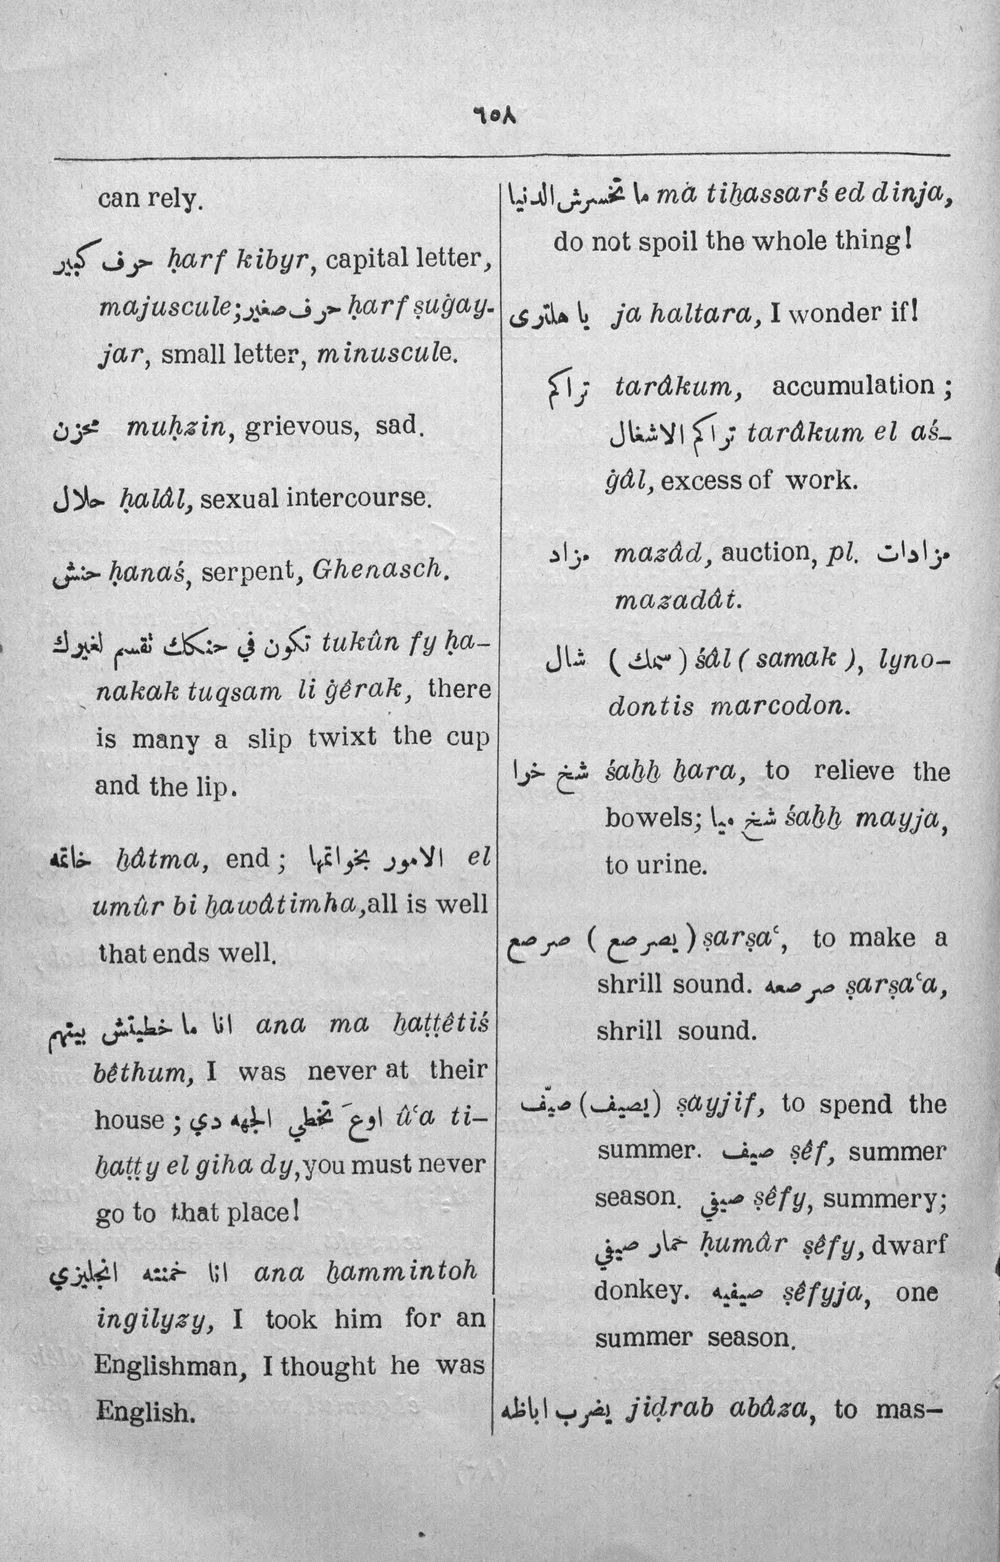 ٦٥٨
can rely.
حرف كبير ḥarf kibyr, capital letter,
majuscule; حرف صغير ḥarf ṣuġay-
jar, small letter, minuscule.
محزن muḥzin, grievous, sad.
حلال ḥalâl, sexual intercourse.
حنش ḥanaś, serpent, Ghenasch.
تكون في حنكك تقسم لغيرك tukûn fy ḥa-
nakak tuqsam li ġêrak, there
is many a slip twixt the cup
and the lip.
خاتمه ḫâtma, end; الامور بخواتمها el
umûr bi ḫawâtimha, all is well
that ends well.
انا ما خطيتش بيتهم ana ma ḫaṭṭêtiś
bêthum, I was never at their
house; اوع تخطي الجهه دي û‘a ti-
ḫaṭṭy el giha dy, you must never
go to that place!
انا خمنته انجليزي ana ḫammintoh
ingilyzy, I took him for an
Englishman, I thought he was
English.
ما تخسرش الدنيا mà tiḫassarś ed dinja,
do not spoil the whole thing!
يا هلترى ja haltara, I wonder if!
تراكم tarâkum, accumulation;
تراكم الاشغال tarâkum el aś-
ġâl, excess of work.
مزاد mazâd, auction, pl. مزادات
mazadât.
شال (سمك) śâl (samak), lyno-
dontis marcodon.
شخ خرا śaḫḫ ḫara, to relieve the
bowels; شخ ميا śaḫḫ mayja,
to urine.
صرصع (يصرصع) ṣarṣa‘, to make a
shrill sound. صرصعه ṣarṣa‘a,
shrill sound.
صيّف (يصيف) ṣayjif, to spend the
summer. صيف ṣêf, summer
season. صيفي ṣêfy, summery;
حمار صيفي ḥumâr ṣêfy, dwarf
donkey. صيفيه ṣêfyja, one
summer season.
يضرب اباظه jiḍrab abâza, to mas-